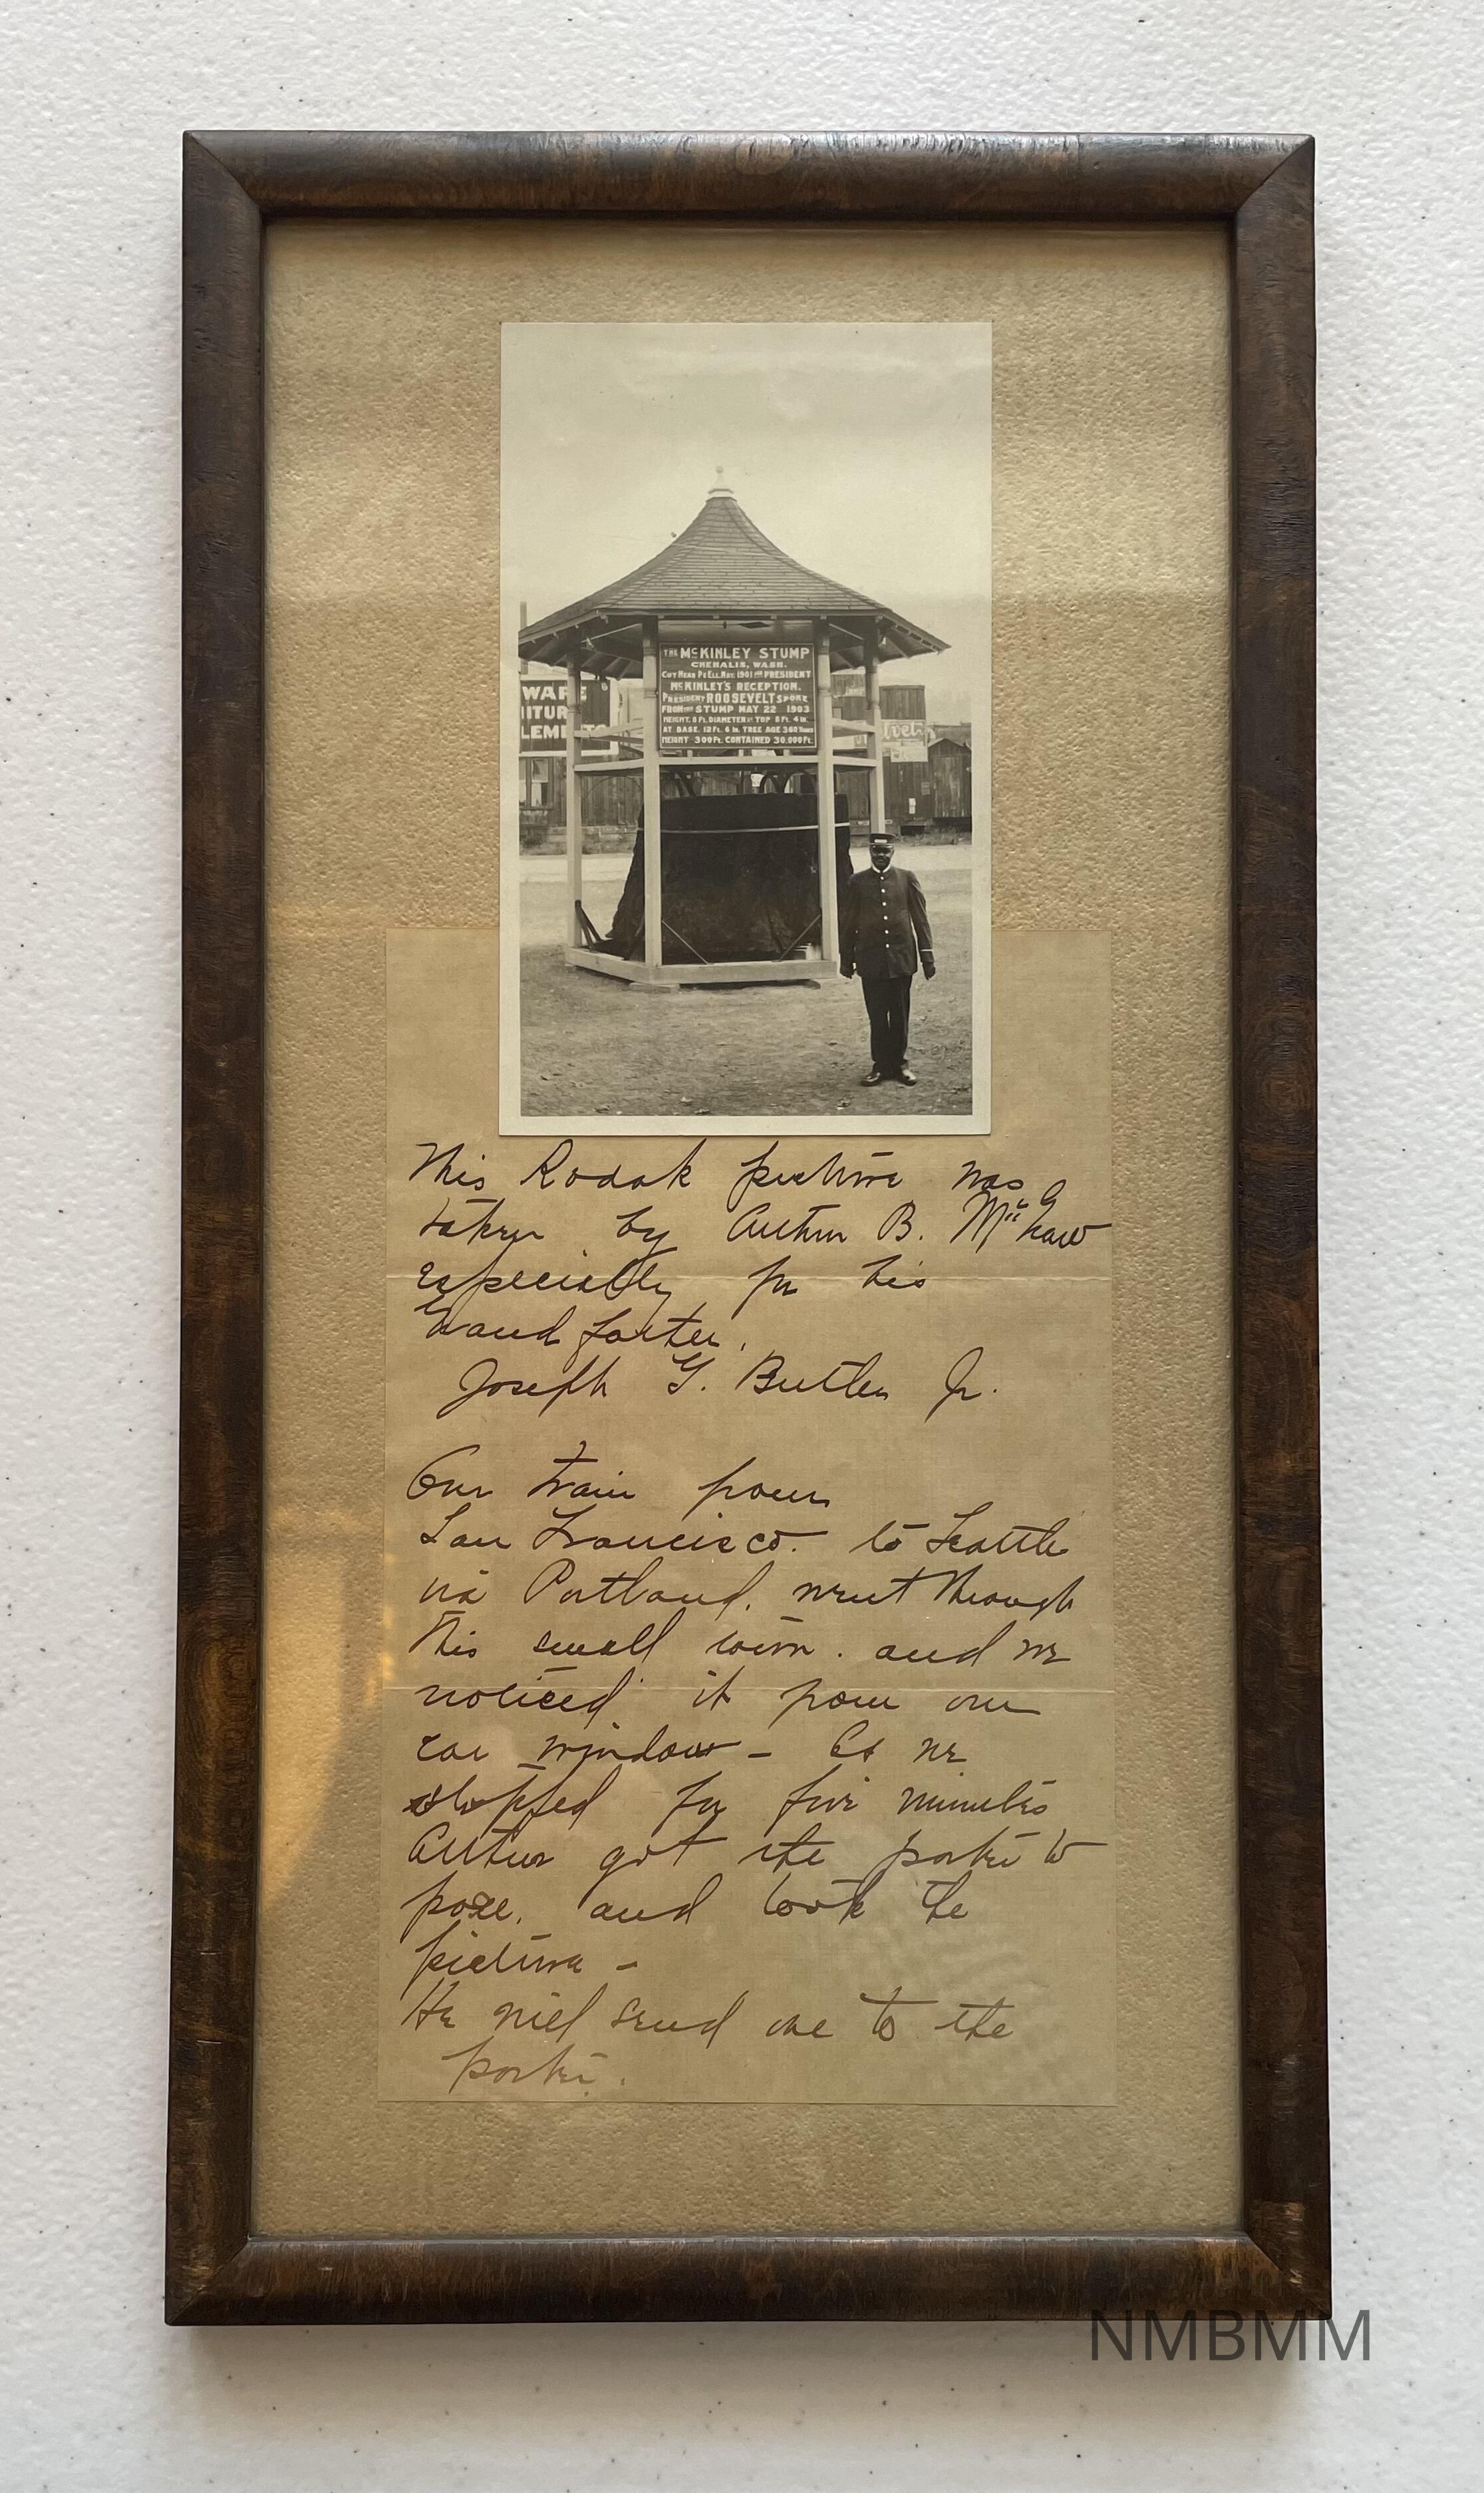 THE McKINLEY STUMP
CHEHALIS, WASH.
CUT NEAR PE ELL, MAY. 1901 FOR PRESIDENT
McKINLEY'S RECEPTION.
PRESIDENT ROOSEVELT SPOKE
FROM THE STUMP MAY 22 1903
HEIGHT. 8 FT. DIAMETER AT TOP 8 FT. 4 IN.
AT BASE. 12 FT. 6 IN. TREE AGE 360 YEARS
HEIGHT 300 FT. CONTAINED 30.000 FT.
WARE
ITUR
LEME
This Kodak picture was
taken by Arthur B. McGraw
especially for his
Grand father.
Joseph G. Butler Jr.
Our train from
San Francisco. to Seattle
via Portland. went through
this small town. and we
noticed it from our
car window - As we
stopped for five minutes
Arthur got the porter to
pose. and took the
picture -
He will send one to the
porter.
NMBMM